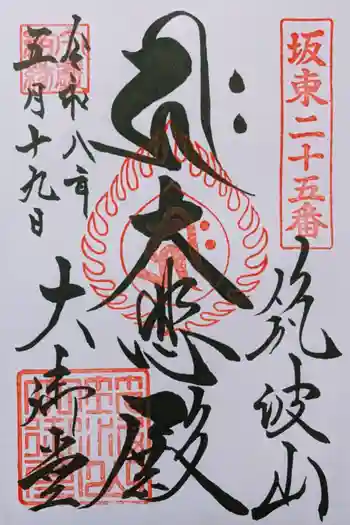 坂東二十五番
筑波山
大悲殿
大御堂
令和八年
五月十九日